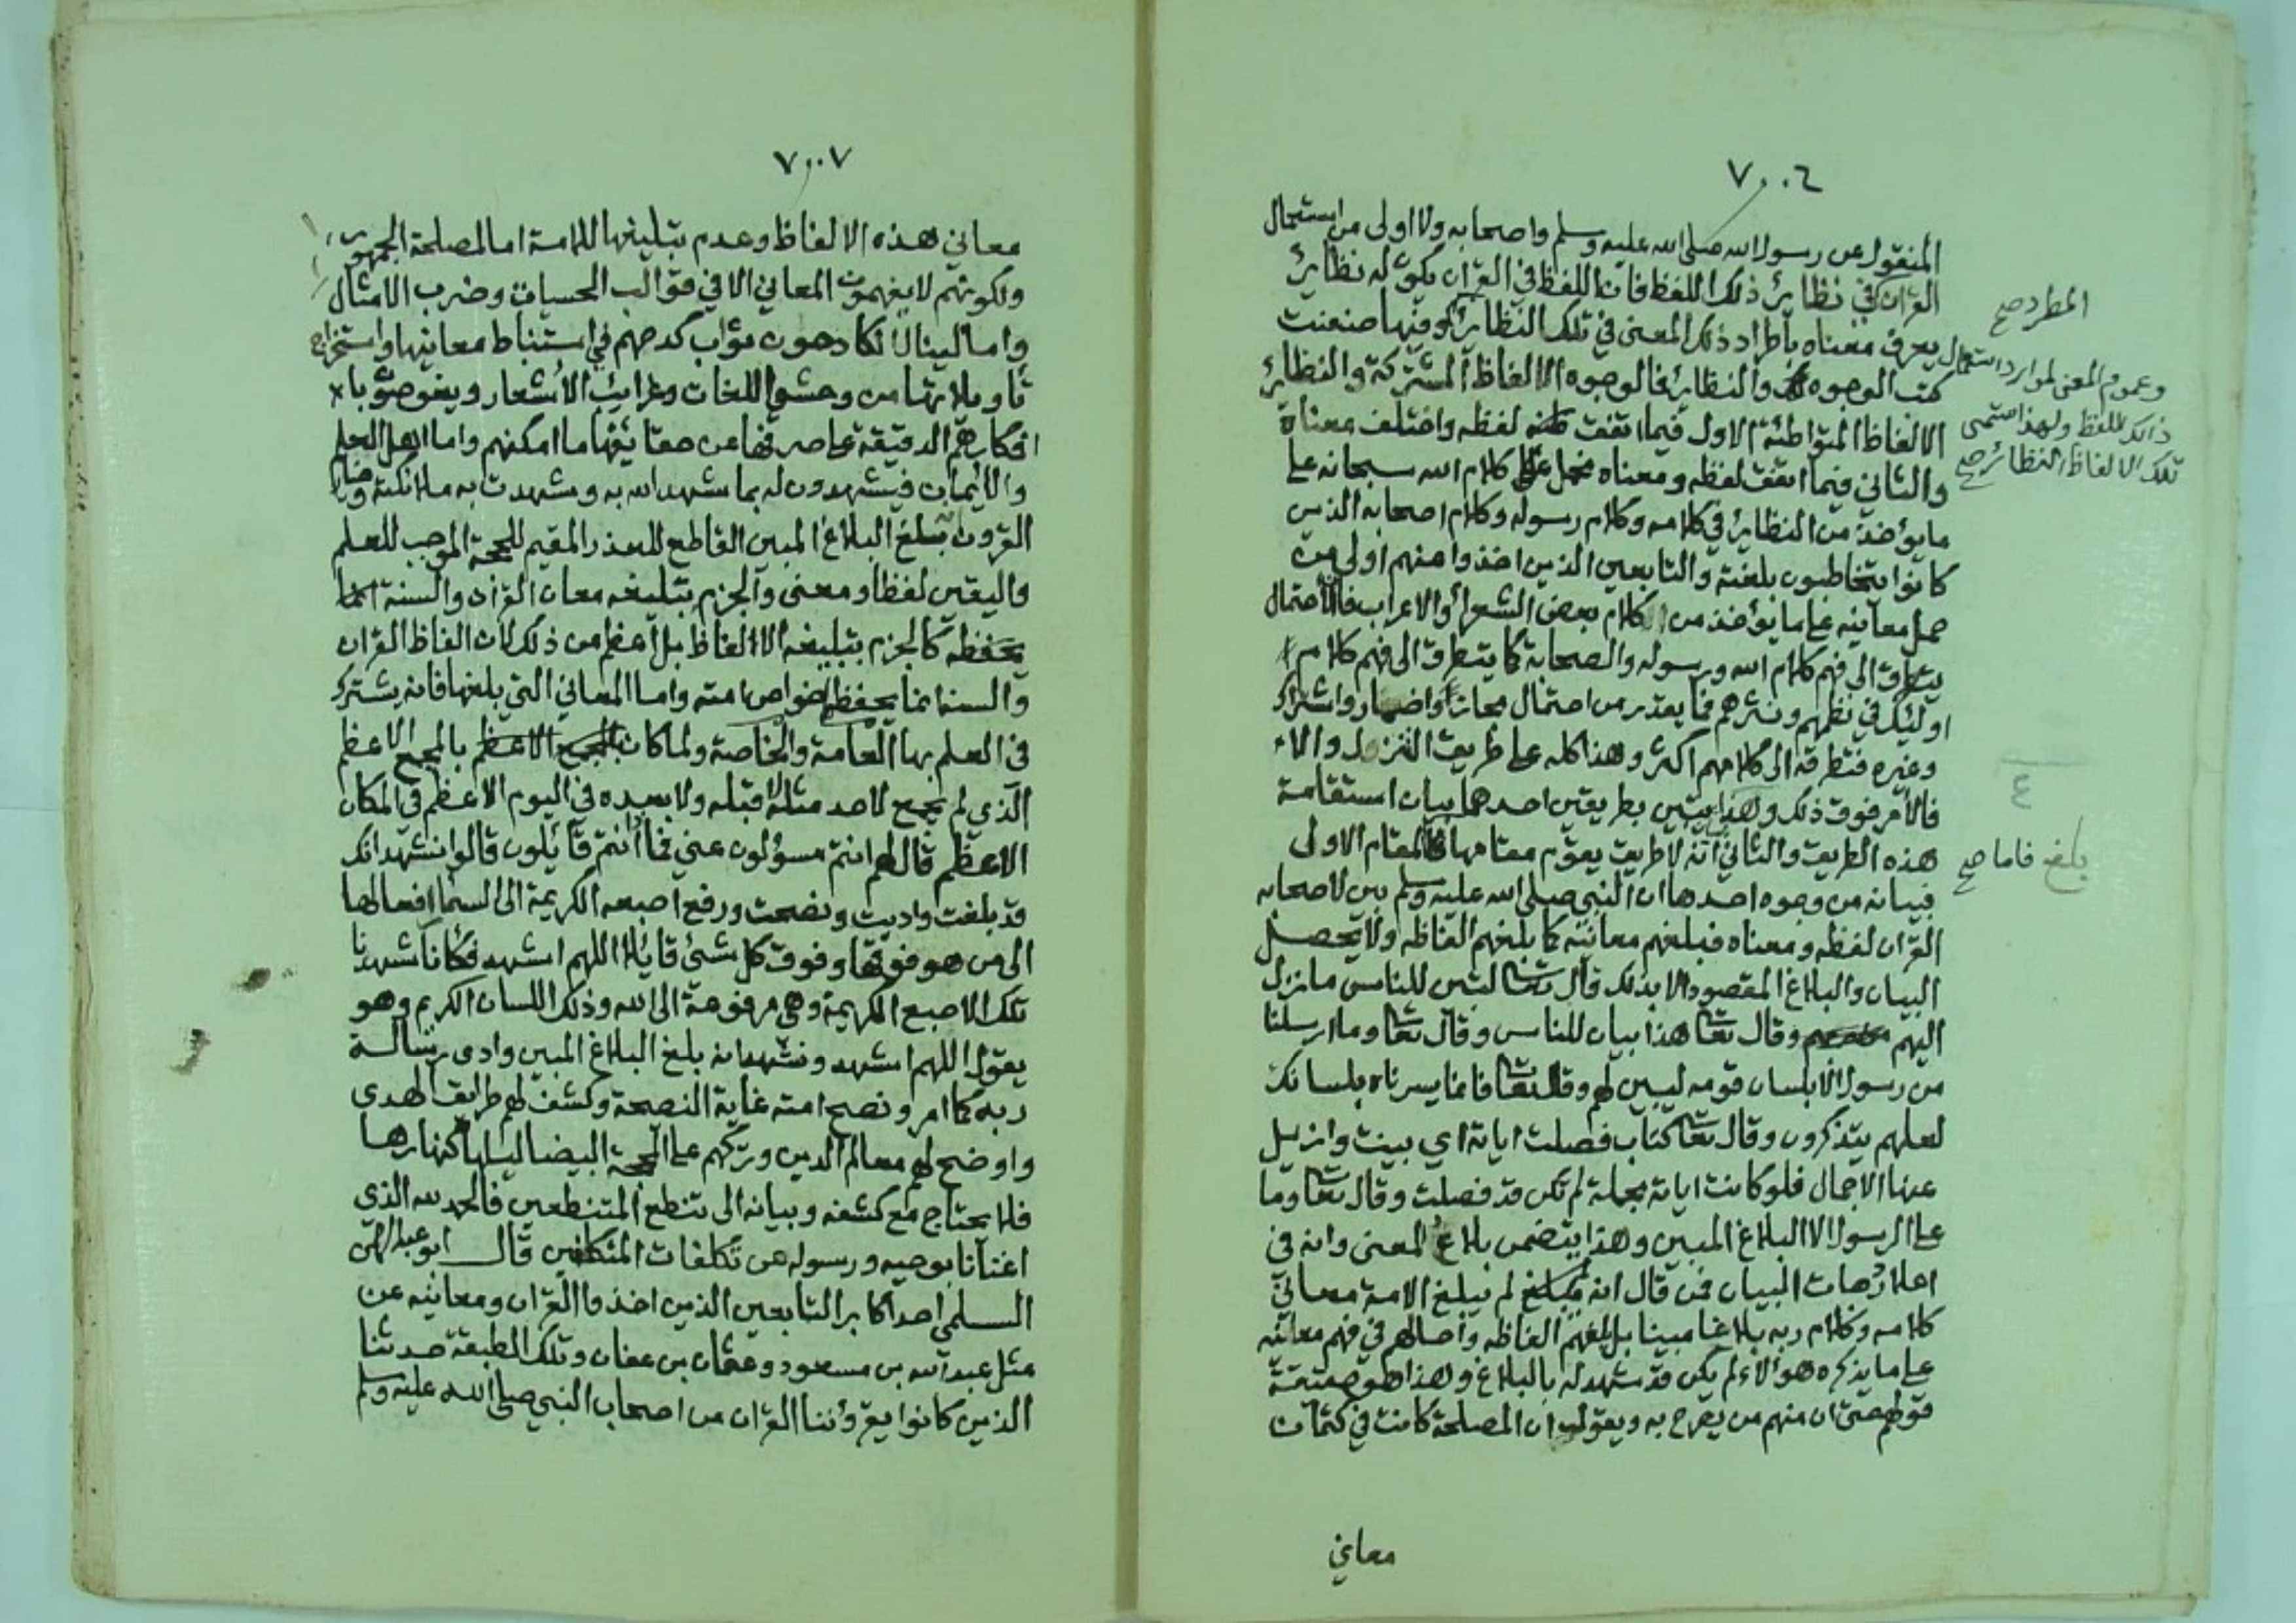 ٧٠٠٦
المنقول عن رسول الله صلى الله عليه وسلم واصحابه ولا اولى من استعمال
القران في نظاير ذلك اللفظ فان اللفظ في القران يكون له نظاير
يعرف معناه باطراد ذلك المعنى في تلك النظاير وفيها صنعت
كتب الوجوه والنظاير فالوجوه الالفاظ المشتركة والنظاير
الالفاظ المتواطئة الاول فيما اتفقت لفظه واختلف معناه
والثاني فيما اتفقت لفظه ومعناه فحمل كلام الله سبحانه على
ما يؤخذ من النظاير في كلامه وكلام رسوله وكلام اصحابه الذين
كانوا يتخاطبون بلغته والتابعين الذين اخذوا منهم اولى من
حمل معانيه على ما يؤخذ من كلام بعض الشعرا والاعراب فالاحتمال
يتطرق الى فهم كلام الله ورسوله والصحابة كما يتطرق الى فهم كلام
اولئك في نظمهم ونثرهم فما يقدر من احتمال مجاز واضمار واشتراك
وغيره فتطرقه الى كلامهم اكثر وهذا كله على طريق التنزل والا
فالامر فوق ذلك وهذا يتبين بطريقين احدهما بيان استقامة
هذه الطريق والثاني انه لا طريق يقوم مقامها فالمقام الاول
فبيانه من وجوه احدها ان النبي صلى الله عليه وسلم بين لاصحابه
القران لفظه ومعناه فبلغهم معانيه كما بلغهم الفاظه ولا يحصل
البيان والبلاغ المقصود الا بذلك قال تعا لتبين للناس ما نزل
اليهم وقال تعا هذا بيان للناس وقال تعا وما ارسلنا
من رسول الا بلسان قومه ليبين لهم وقال تعا فانما يسرناه بلسانك
لعلهم يتذكرون وقال تعا كتاب فصلت اياته اي بينت وازيل
عنها الاجمال فلو كانت اياته مجملة لم تكن قد فصلت وقال تعا وما
على الرسول الا البلاغ المبين وهذا يتضمن بلاغ المعنى وانه في
اعلا درجات البيان فمن قال انه لم يبلغ الامة معاني
كلامه وكلام ربه بلاغا مبينا بل بلغهم الفاظه واحالهم في فهم معانيه
على ما يذكره هؤلاء لم يكن قد شهد له بالبلاغ وهذا هو حقيقة
قولهم حتى ان منهم من يصرح به ويقول ان المصلحة كانت في كتمان
معاني
المطرد صح
وعموم المعنى لموارد استعمال
ذلك اللفظ ولهذا تسمى
تلك الالفاظ النظائر صح
٤
بلغ فاما صح
٧٠٠٧
معاني هذه الالفاظ وعدم تبليغها للامة اما لمصلحة الجمهور
ولكونهم لا يفهمون المعاني الا في قوالب الحسيات وضرب الامثال
واما لينال الكادحون ثواب كدحهم في استنباط معانيها واستخراج
تاويلاتها من وحشي اللغات وغرايب الاشعار ويغوصون با
افكارهم الدقيقة على صرفها عن حقايقها ما امكنهم واما اهل العلم
والايمان فيشهدون له بما شهد الله به وشهدت به ملائكته وخيار
القرون بلغ البلاغ المبين القاطع للعذر المقيم للحجة الموجب للعلم
واليقين لفظا ومعنى والجزم بتبليغه معان القران والسنة
كالجزم بتبليغه الالفاظ بل اعظم من ذلك لان الفاظ القران
والسنة انما يحفظها خواص امته واما المعاني التي بلغها فانه يشترك
في العلم بها العامة والخاصة ولما كان بالمجمع الاعظم
الذي لم يجمع لاحد مثله قبله ولا بعده في اليوم الاعظم في المكان
الاعظم قال لهم انتم مسؤلون عني فما انتم قائلون قالوا نشهد انك
قد بلغت واديت ونصحت ورفع اصبعه الكريمة الى السما رافعا لها
الى من هو فوقها وفوق كل شئ قائلا اللهم اشهد فكانا شهدنا
تلك الاصبع الكريمة وهي مرفوعة الى الله وذلك اللسان الكريم وهو
يقول اللهم اشهد ونشهد انه بلغ البلاغ المبين وادى رسالة
ربه كما امر ونصح امته غاية النصيحة وكشف لهم طرايق الهدى
واوضح لهم معالم الدين وتركهم على المحجة البيضا ليلها كنهارها
فلا يحتاج مع كشفه وبيانه الى تنطع المتنطعين فالحمد لله الذي
اغنانا بوحيه ورسوله عن تكلفات المتكلفين قال ابو عبد الرحمن
السلمي احد اكابر التابعين الذين اخذوا القران ومعانيه عن
مثل عبد الله بن مسعود وعثمان بن عفان وتلك الطبقة حدثنا
الذين كانوا يقرؤننا القران من اصحاب النبي صلى الله عليه وسلم